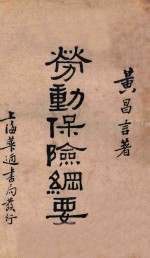 黃昌言著
勞動保險綱要
上海華通書局發行